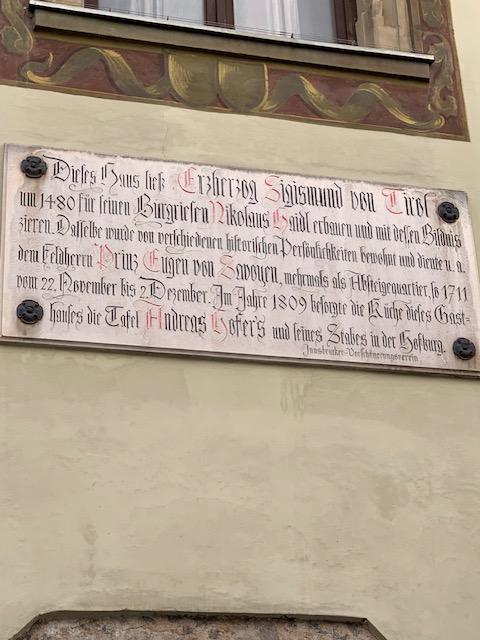 Dieses Haus ließ Erzherzog Sigismund von Tirol
um 1480 für seinen Burgriesen Nikolaus Haidl erbauen und mit dessen Bildnis
zieren. Dasselbe wurde von verschiedenen historischen Persönlichkeiten bewohnt und diente u. a.
dem Feldherrn Prinz Eugen von Savoyen, mehrmals als Absteigequartier, so 1711
vom 22. November bis 2. Dezember. Im Jahre 1809 besorgte die Küche dieses Gast-
hauses die Tafel Andreas Hofer's und seines Stabes in der Hofburg.
Innsbrucker-Verschönerungsverein.